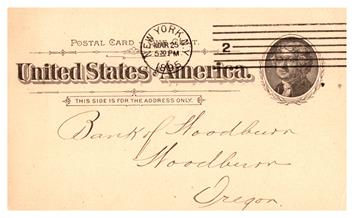 POSTAL CARD ONE CENT.
NEW YORK, N.Y.
MAR 25
5 30 PM
1895
2
United States of America.
THIS SIDE IS FOR THE ADDRESS ONLY.
Bank of Woodburn
Woodburn
Oregon.